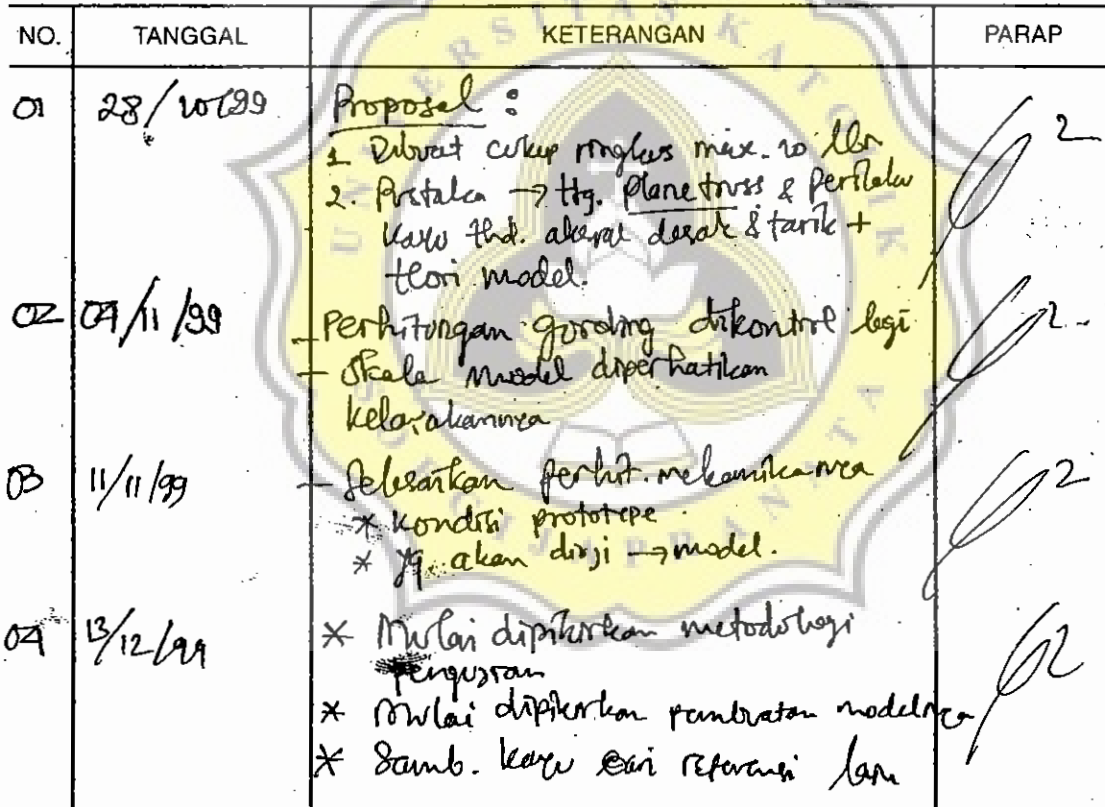 NO. TANGGAL KETERANGAN PARAP
01 28/10/99 Proposal :
1. Dibuat cukup ringkas max. 10 lbr
2. Pustaka → ttg. plane truss & perilaku
kayu thd. aksial desak & tarik +
teori model.
02 04/11/99 – Perhitungan gording dikontrol lagi
– Skala model diperhatikan
kelayakannya
03 11/11/99 – Selesaikan perhit. mekanikanya
* Kondisi prototype
* Yg. akan diuji → model.
04 13/12/99 * Mulai dipikirkan metodologi
pengujian
* Mulai dipikirkan pembuatan modelnya
* Samb. kayu cari referensi lain
UNIVERSITAS KATOLIK
SOEGIJAPRANATA